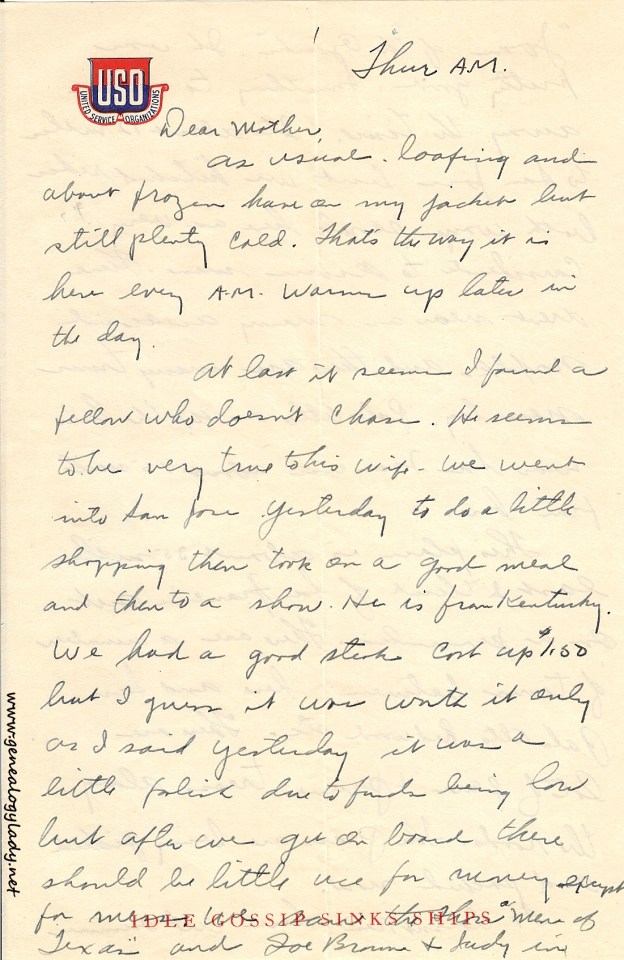 1
Thur A.M.
USO
UNITED SERVICE ORGANIZATIONS
Dear Mother,
As usual. loafing and
about frozen have on my jacket but
still plenty cold. That's the way it is
here every A.M. Warms up later in
the day.
At last it seems I found a
fellow who doesn't chase. He seems
to be very true to his wife. We went
into San Jose yesterday to do a little
shopping then took on a good meal
and then to a show. He is from Kentucky.
We had a good steak cost us $1.50
but I guess it was worth it only
as I said yesterday it was a
little foolish due to funds being low
but after we get on board there
should be little use for money except
for mess. We saw the "Men of
IDLE GOSSIP SINKS SHIPS
Texas" and Joe Brown & Judy in
www.genealogylady.net